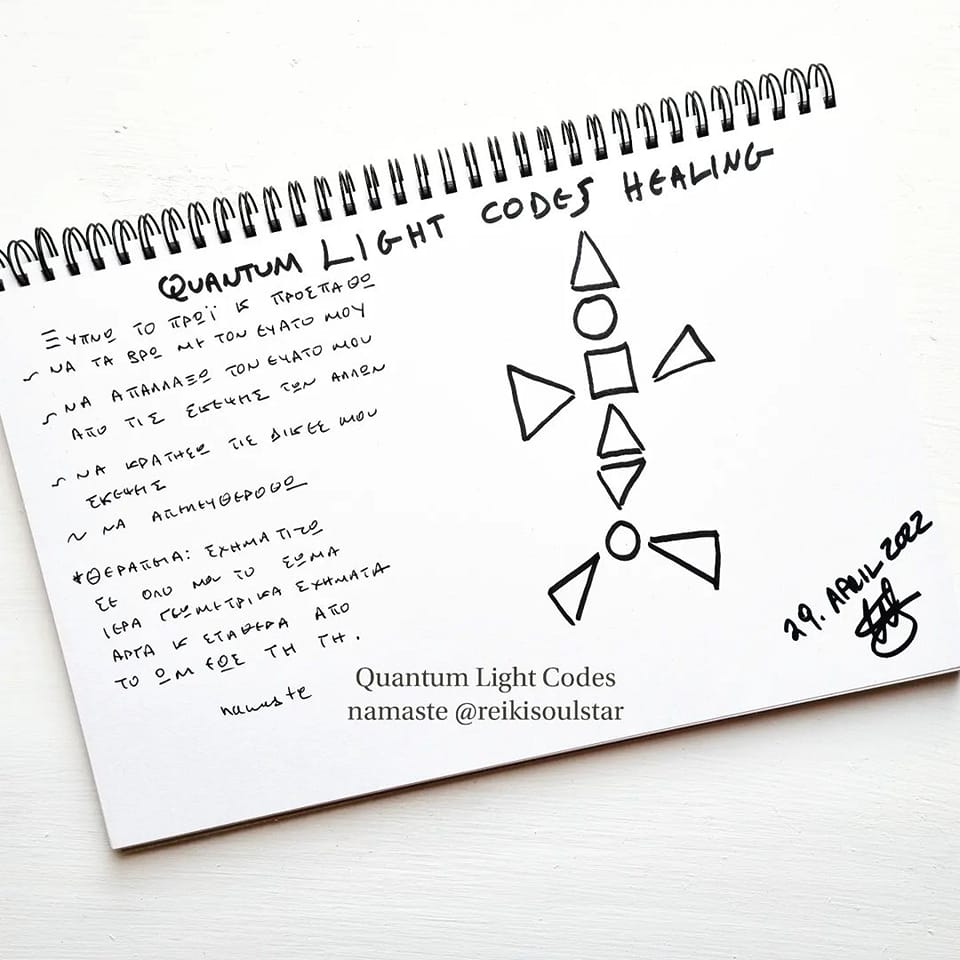 QUANTUM LIGHT CODES HEALING
ΞΥΠΝΩ ΤΟ ΠΡΩΪ Κ ΠΡΟΣΠΑΘΩ
~ ΝΑ ΤΑ ΒΡΩ ΜΕ ΤΟΝ ΕΥΑΤΟ ΜΟΥ
~ ΝΑ ΑΠΑΛΛΑΞΩ ΤΟΝ ΕΥΑΤΟ ΜΟΥ
ΑΠΟ ΤΙΣ ΣΚΕΨΗΣ ΤΩΝ ΑΛΛΩΝ
~ ΝΑ ΚΡΑΤΗΣΩ ΤΙΣ ΔΙΚΕΣ ΜΟΥ
ΣΚΕΨΗΣ
~ ΝΑ ΑΠΕΛΕΥΘΕΡΟΘΩ
*ΘΕΡΑΠΕΙΑ: ΣΧΗΜΑΤΙΖΩ
ΣΕ ΟΛΟ ΜΟΥ ΤΟ ΣΩΜΑ
ΙΕΡΑ ΓΕΩΜΕΤΡΙΚΑ ΣΧΗΜΑΤΑ
ΑΡΓΑ Κ ΣΤΑΘΕΡΑ ΑΠΟ
ΤΟ ΩΜ ΕΩΣ ΤΗ ΓΗ.
namaste
29. APRIL 2022
Quantum Light Codes
namaste @reikisoulstar